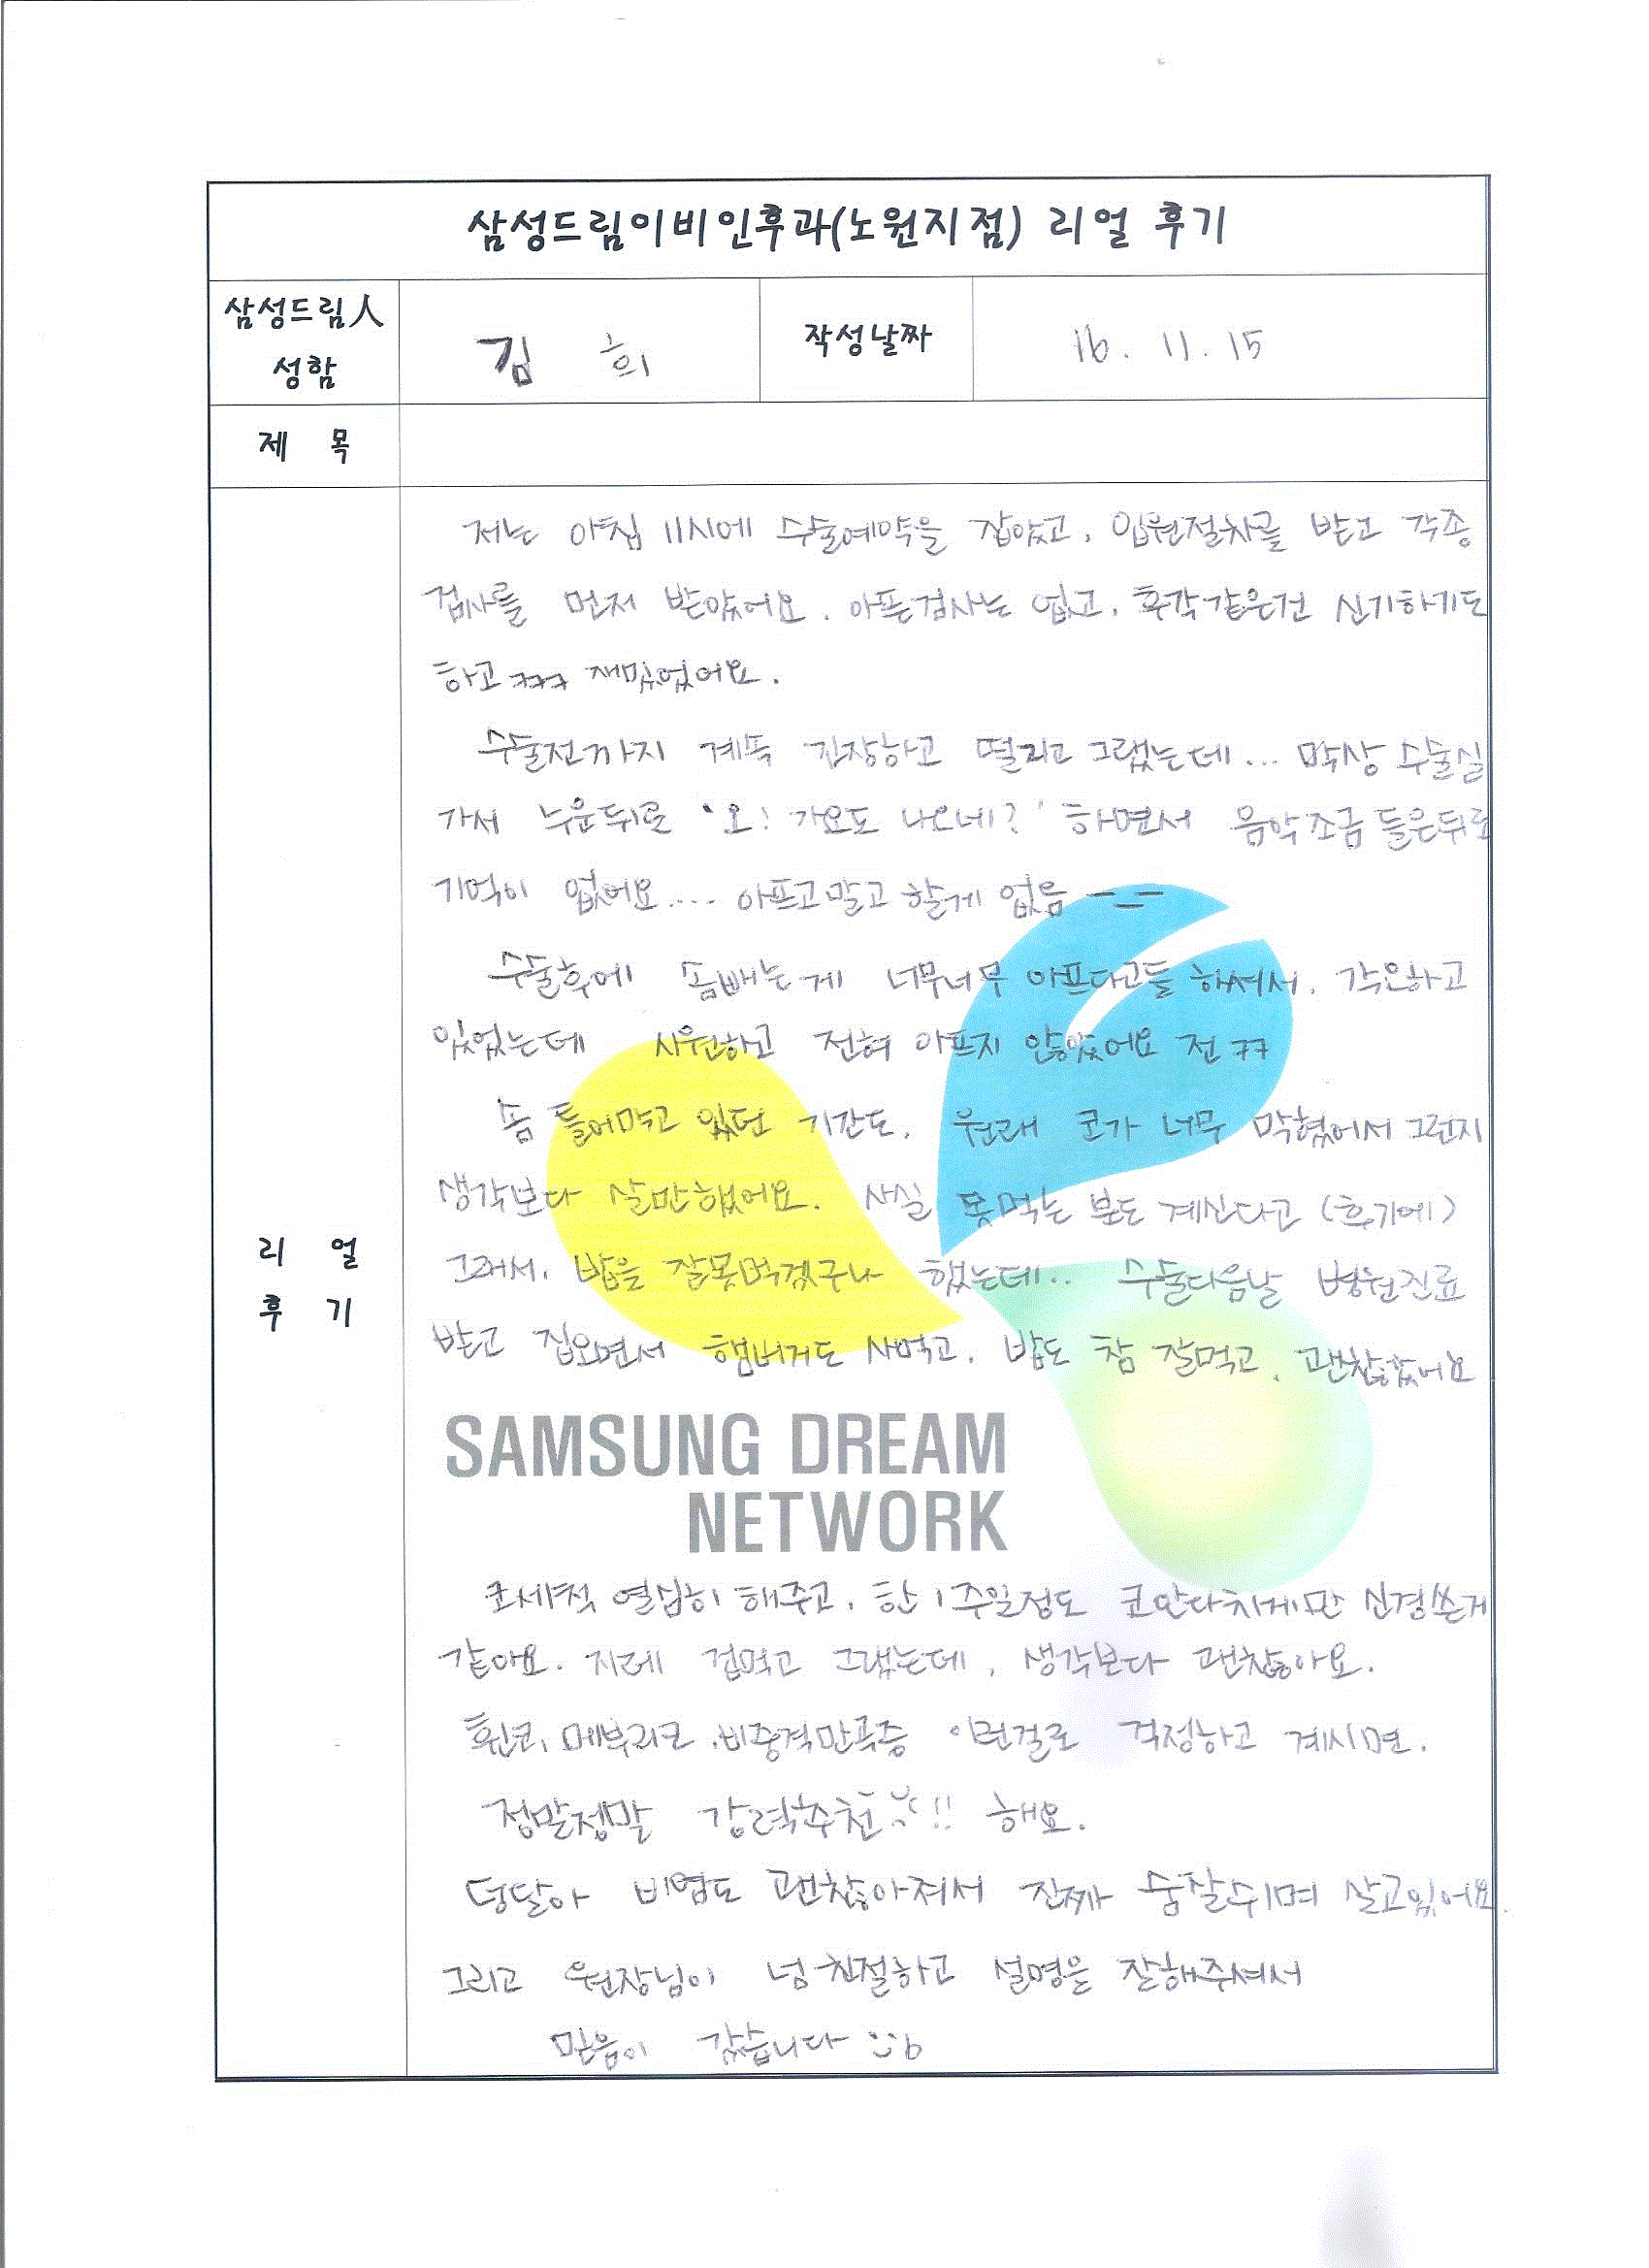 삼성드림이비인후과(노원지점) 리얼 후기
삼성드림人
성함
김 희
작성날짜
16. 11. 15
제 목
저는 아침 11시에 수술예약을 잡았고, 입원절차를 받고 각종
검사를 먼저 받았어요. 아픈검사는 없고, 후각같은건 신기하기도
하고 ㅋㅋㅋ 재밌었어요.
수술전까지 계속 긴장하고 떨리고 그랬는데... 막상 수술실
가서 누운뒤로 '오! 가요도 나오네?' 하면서 음악조금 들은뒤로
기억이 없어요.... 아프고말고 할게 없음 ㅡㅡ
수술후에 솜빼는게 너무너무 아프다고들 하셔서, 각오하고
있었는데 시원하고 전혀 아프지 않았어요 전 ㅋㅋ
솜 틀어막고 있던 기간도, 원래 코가 너무 막혔어서 그런지
생각보다 살만했어요. 사실 못먹는 분도 계신다고 (후기에)
그래서, 밥을 잘못먹겠구나 했는데.. 수술다음날 병원진료
받고 집오면서 햄버거도 사먹고, 밥도 참 잘먹고, 괜찮았어요
SAMSUNG DREAM
NETWORK
리 얼
후 기
코세척 열심히 해주고, 한 1주일정도 코안다치게만 신경쓴게
같아요. 지레 겁먹고 그랬는데, 생각보다 괜찮아요.
휜코, 메부리코, 비중격만곡증 이런걸로 걱정하고 계시면,
정말정말 강력추천!! 해요.
덩달아 비염도 괜찮아져서 진짜 숨잘쉬며 살고있어요.
그리고 원장님이 넘 친절하고 설명을 잘해주셔서
믿음이 갔습니다 :)b